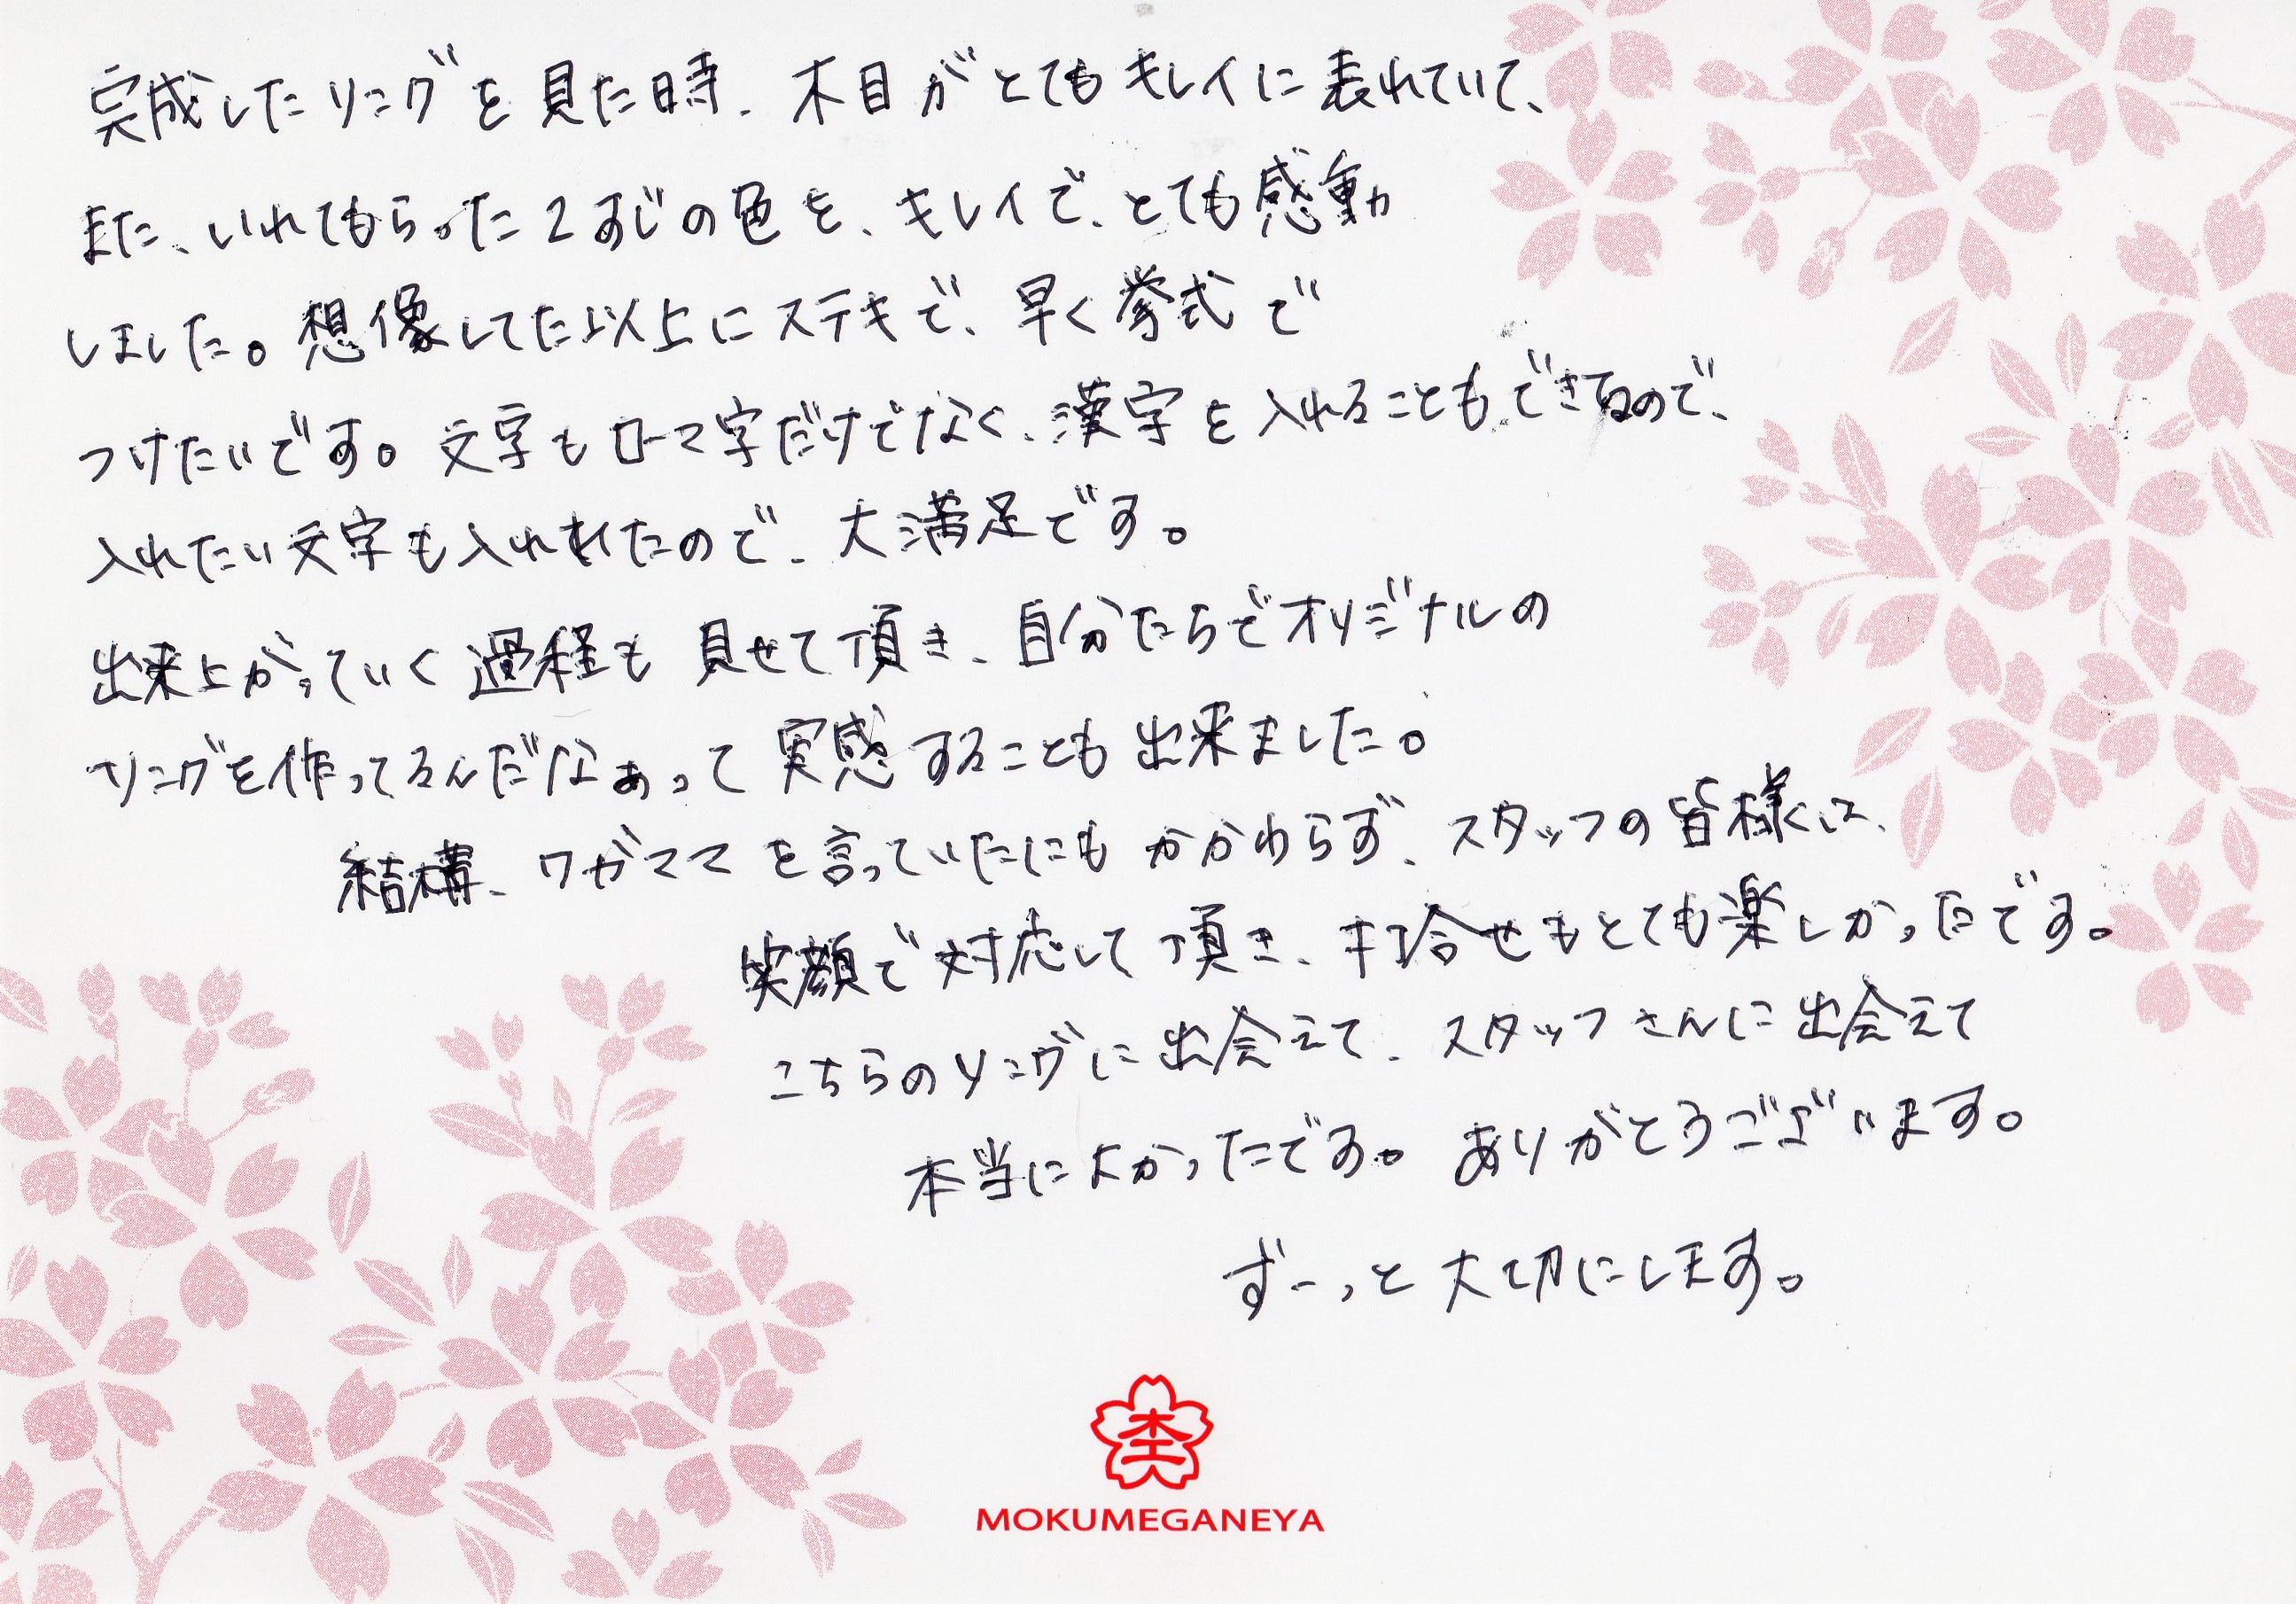 完成したリングを見た時、木目がとてもキレイに表れていて、
また、いれてもらった2すじの色も、キレイで、とても感動
しました。想像してた以上にステキで、早く挙式で
つけたいです。文字もローマ字だけでなく、漢字を入れることもできるので、
入れたい文字も入れれたので、大満足です。
出来上がっていく過程も見せて頂き、自分たちでオリジナルの
リングを作ってるんだなぁって実感することも出来ました。
結構、ワガママを言っていたにもかかわらず、スタッフの皆様に、
笑顔で対応して頂き、打合せもとても楽しかったです。
こちらのリングに出会えて、スタッフさんに出会えて
本当によかったです。ありがとうございます。
ずーっと大切にします。
MOKUMEGANEYA